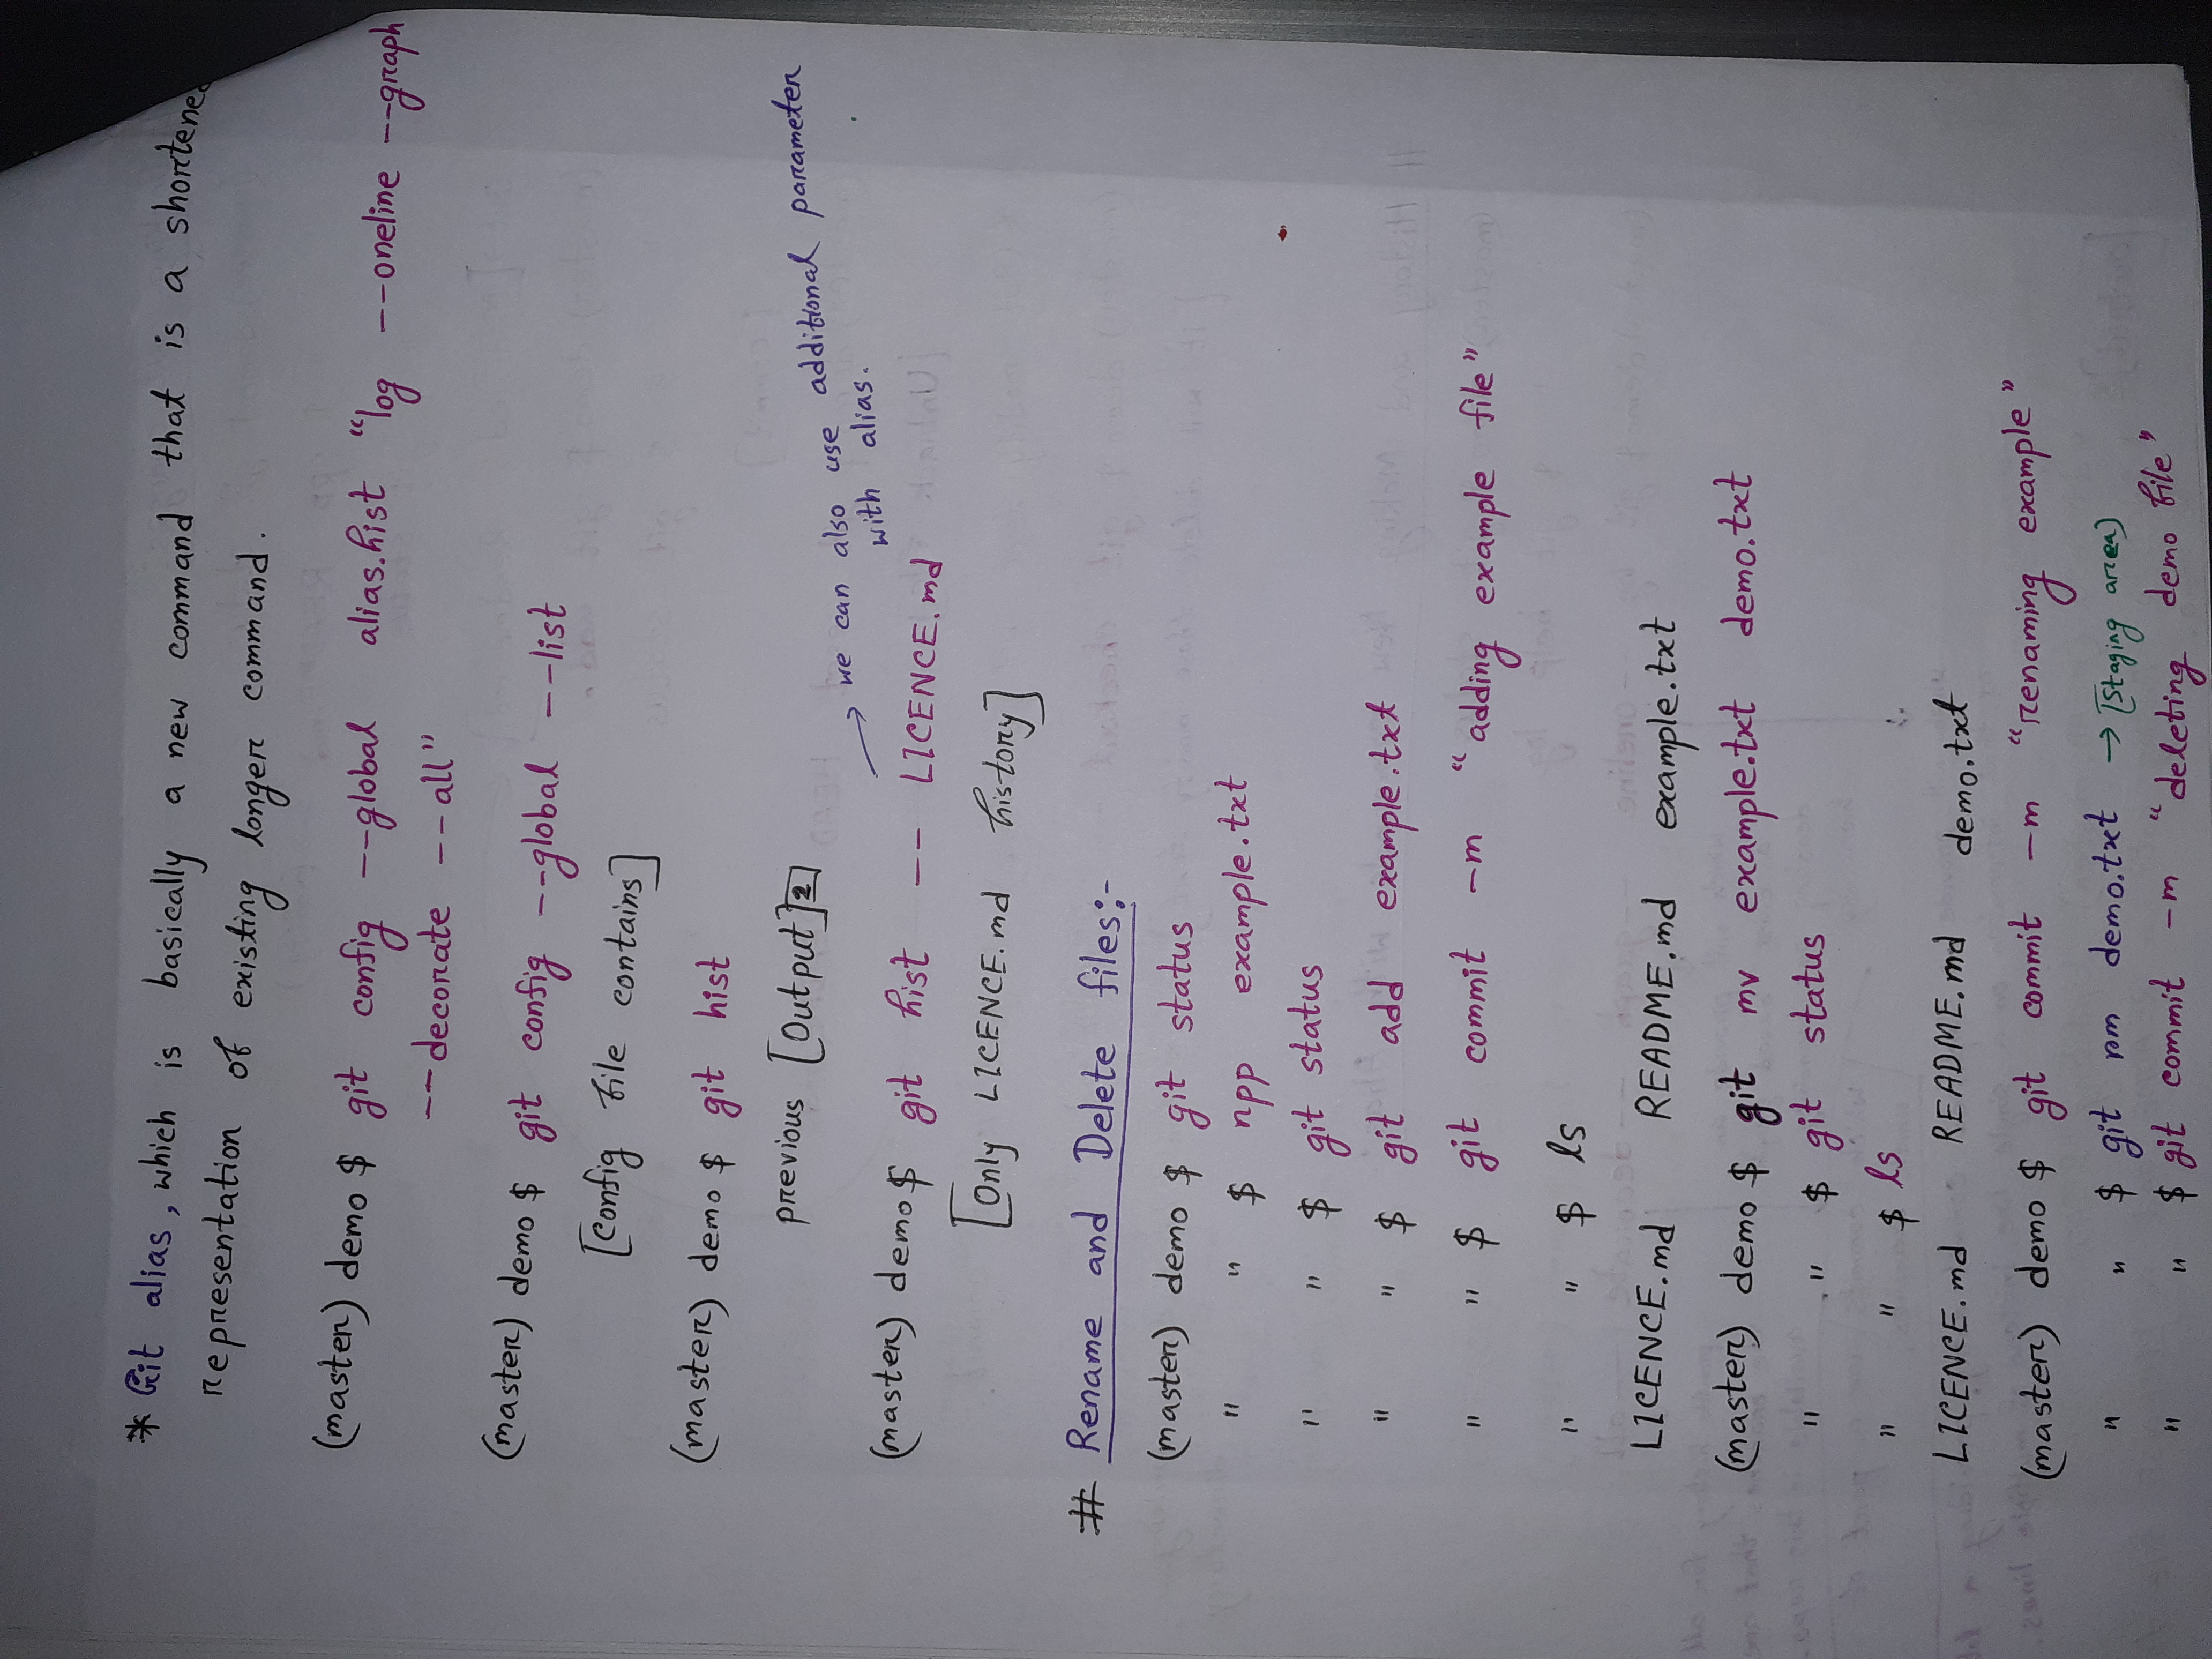 * Git alias, which is basically a new command that is a shortene
representation of existing longer command.
(master) demo $ git config --global alias.hist “log --oneline --graph
--decorate --all”
(master) demo $ git config --global --list
[Config file contains]
(master) demo $ git hist
previous [Output] 2
→ we can also use additional parameter
with alias.
(master) demo $ git hist -- LICENCE.md
[Only LICENCE.md history]
# Rename and Delete files:-
(master) demo $ git status
" " $ npp example.txt
" " $ git status
" " $ git add example.txt
" " $ git commit -m “adding example file”
" " $ ls
LICENCE.md README.md example.txt
(master) demo $ git mv example.txt demo.txt
" " $ git status
" " $ ls
LICENCE.md README.md demo.txt
(master) demo $ git commit -m “renaming example”
" " $ git rm demo.txt → [Staging area]
" " $ git commit -m “deleting demo file”